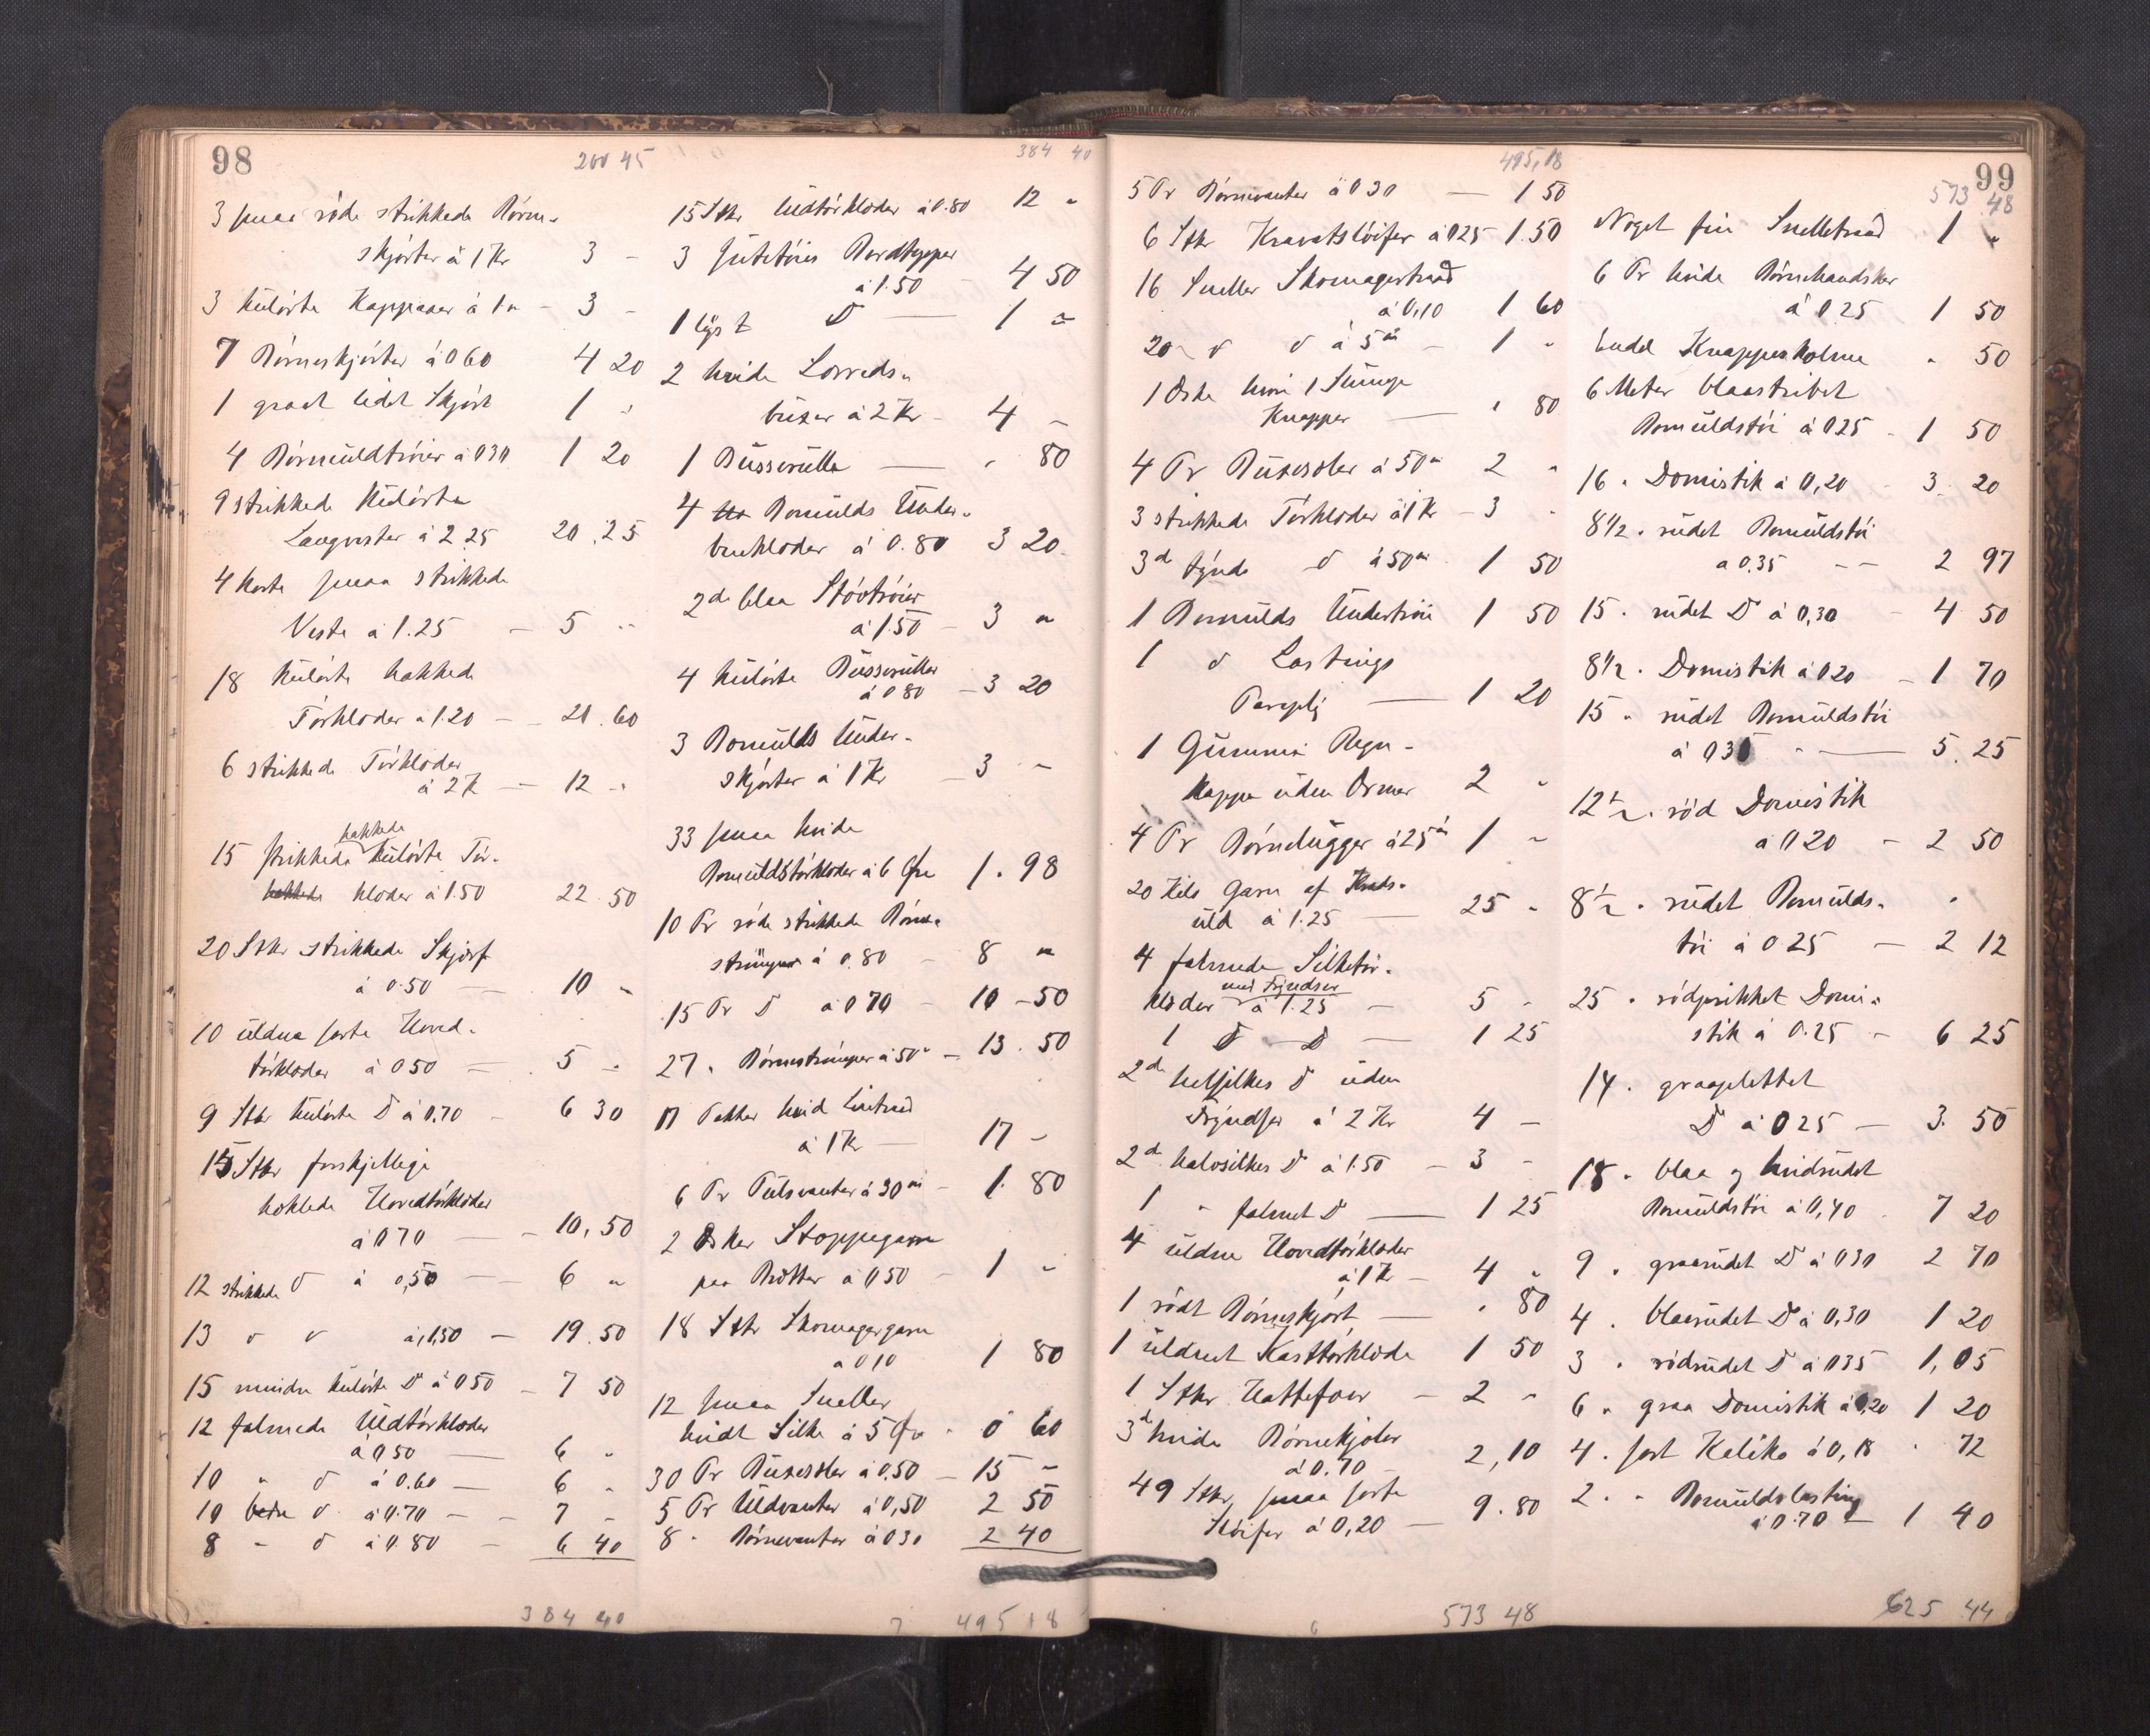 98
200 45
3 smaa røde strikkede Børne-
skjørter à 1 Kr 3 -
3 kulørte Kappaaer à 1 " - 3 -
7 Børneskjørter à 0 60 4 20
1 graat lidet Skjørt 1 "
4 Børneuldtrøier à 0 30 1 20
9 strikkede kulørte
Langvester à 2.25 20.25
4 korte smaa strikkede
Veste à 1.25 - 5 "
18 kulørte hækkede
Tørklæder à 1.20 - 21.60
6 strikkede Tørklæder
à 2 K - 12 "
hækkede
15 strikkede kulørte Tør-
klæder à 1.50 22.50
20 Stkr strikkede Skjørf
à 0.50 - 10 "
10 uldne sorte Hoved-
tørklæder à 0 50 - 5 "
9 Stkr kulørte D à 0.70 - 6 30
15 Stkr forskjellige
heklede Hovedtørklæder
à 0 70 - 10,50
12 strikkede d à 0,50 - 6 "
13 d d à 1,50 - 19.50
15 mindre kulørte D à 0 50 - 7 50
12 falmede Uldtørklæder
à 0 50 - 6 "
10 " d à 0.60 - 6 "
10 bedre d à 0.70 - 7 -
8 " d à 0.80 - 6 40
384 40
384 40
15 Stkr Uldtørklæder à 0.80 12 "
3 Jutetøies Bordtepper
à 1.50 - 4 50
1 lyst D - 1 "
2 hvide Lerreds-
buxer à 2 Kr - 4 -
1 Busserulle - " 80
4 Bomulds Under-
benklæder à 0.80 3 20
2 do blaa Støvtrøier
à 1.50 - 3 "
4 kulørte Busseruller
à 0 80 - 3 20
3 Bomulds Under-
skjørter à 1 Kr - 3 "
33 smaa hvide
Bomuldstørklæder à 6 Øre 1.98
10 Pr røde strikkede Børne-
strømper à 0.80 - 8 "
15 Pr D à 0 70 - 10 - 50
27 " Børnestrømper à 50 " - 13.50
17 Pakker hvid Lintraad
à 1 Kr - 17 -
6 Pr Pulsvanter à 30 ør - 1.80
2 Æsker Stoppegarn
paa Bretter à 0 50 - 1 "
18 Stkr Skomagergarn
à 0 10 1 80
12 smaa Sneller
hvidt Silke à 5 Øre " 0 60
30 Pr Buxeseler à 0.50 - 15 -
5 Pr Uldvanter à 0,50 2 50
8 " Børnevanter à 0 30 2 40
7 495 18
99
495,18
5 Pr Børnevanter à 0 30 - 1 50
6 Stkr Kravatsløifer à 0 25 1.50
16 Sneller Skomagertraad
à 0,10 1 60
20 " d d à 5 ør - 1 "
1 Æske
Knapper - " 80
4 Pr Buxeseler à 50 " 2 "
3 strikkede Tørklæder à 1 Kr - 3 "
3 do tynde d à 50 ør 1 50
1 Bomulds Undertrøie 1 50
1 d Lastings
Paraply - 1 20
1 Gummi Regn-
kappe uden Ærmer 2 "
4 Pr Børnelugger à 25 ør 1 "
20 Kilo Garn af Kruds-
uld à 1.25 - 25 "
4 falmede Silketør-
med Fryndser
klæder à 1.25 - 5 "
1 D - D - 1 25
2 do helsilkes D uden
Fryndser à 2 Kr 4 -
2 do halvsilkes D à 1.50 - 3 -
1 " falmet D - 1 25
4 uldne Hovedtørklæder
à 1 Kr - 4 "
1 rødt Børneskjørt - " 80
1 uldent Kasttørklæde 1 50
1 Stkr Hattefoer - 2 "
3 do hvide Børnekjoler
à 0.70 - 2,10
49 Stkr smaa sorte
Sløifer à 0,20 - 9.80
6 573 48
573 48
Noget fin Snelletraad 1 "
6 Pr hvide Børnehandsker
à 0 25 1 50
Endel Knappeskolme " 50
6 Meter blaastribet
Bomuldstøi à 0 25 - 1 50
16 " Domistik à 0,20 - 3.20
8 1/2 " rudet Bomuldstøi
à 0.35 - - 2 97
15 " rudet D à 0,30 - 4 50
8 1/2 " Domistik à 0 20 - 1 70
15 " rudet Bomuldstøi
à 0 35 " - 5.25
12 1/2 " rød Domistik
à 0 20 - 2 50
8 1/2 " rudet Bomulds-
tøi à 0 25 - 2 12
25 " rødprikket Domi-
stik à 0.25 - 6 25
14 " graaplettet
D à 0 25 - 3.50
18 " blaa og hvidrudet
Bomuldstøi à 0,40 - 7 20
9 " graarudet D à 0 30 2 70
4 " blaarudet D à 0,30 1 20
3 " rødrudet D à 0 35 1,05
6 " graa Domistik à 0,20 1 20
4 " sort Kaliko à 0,18 " 72
2 " " Bomuldslasting
à 0.70 - 1 40
625 44